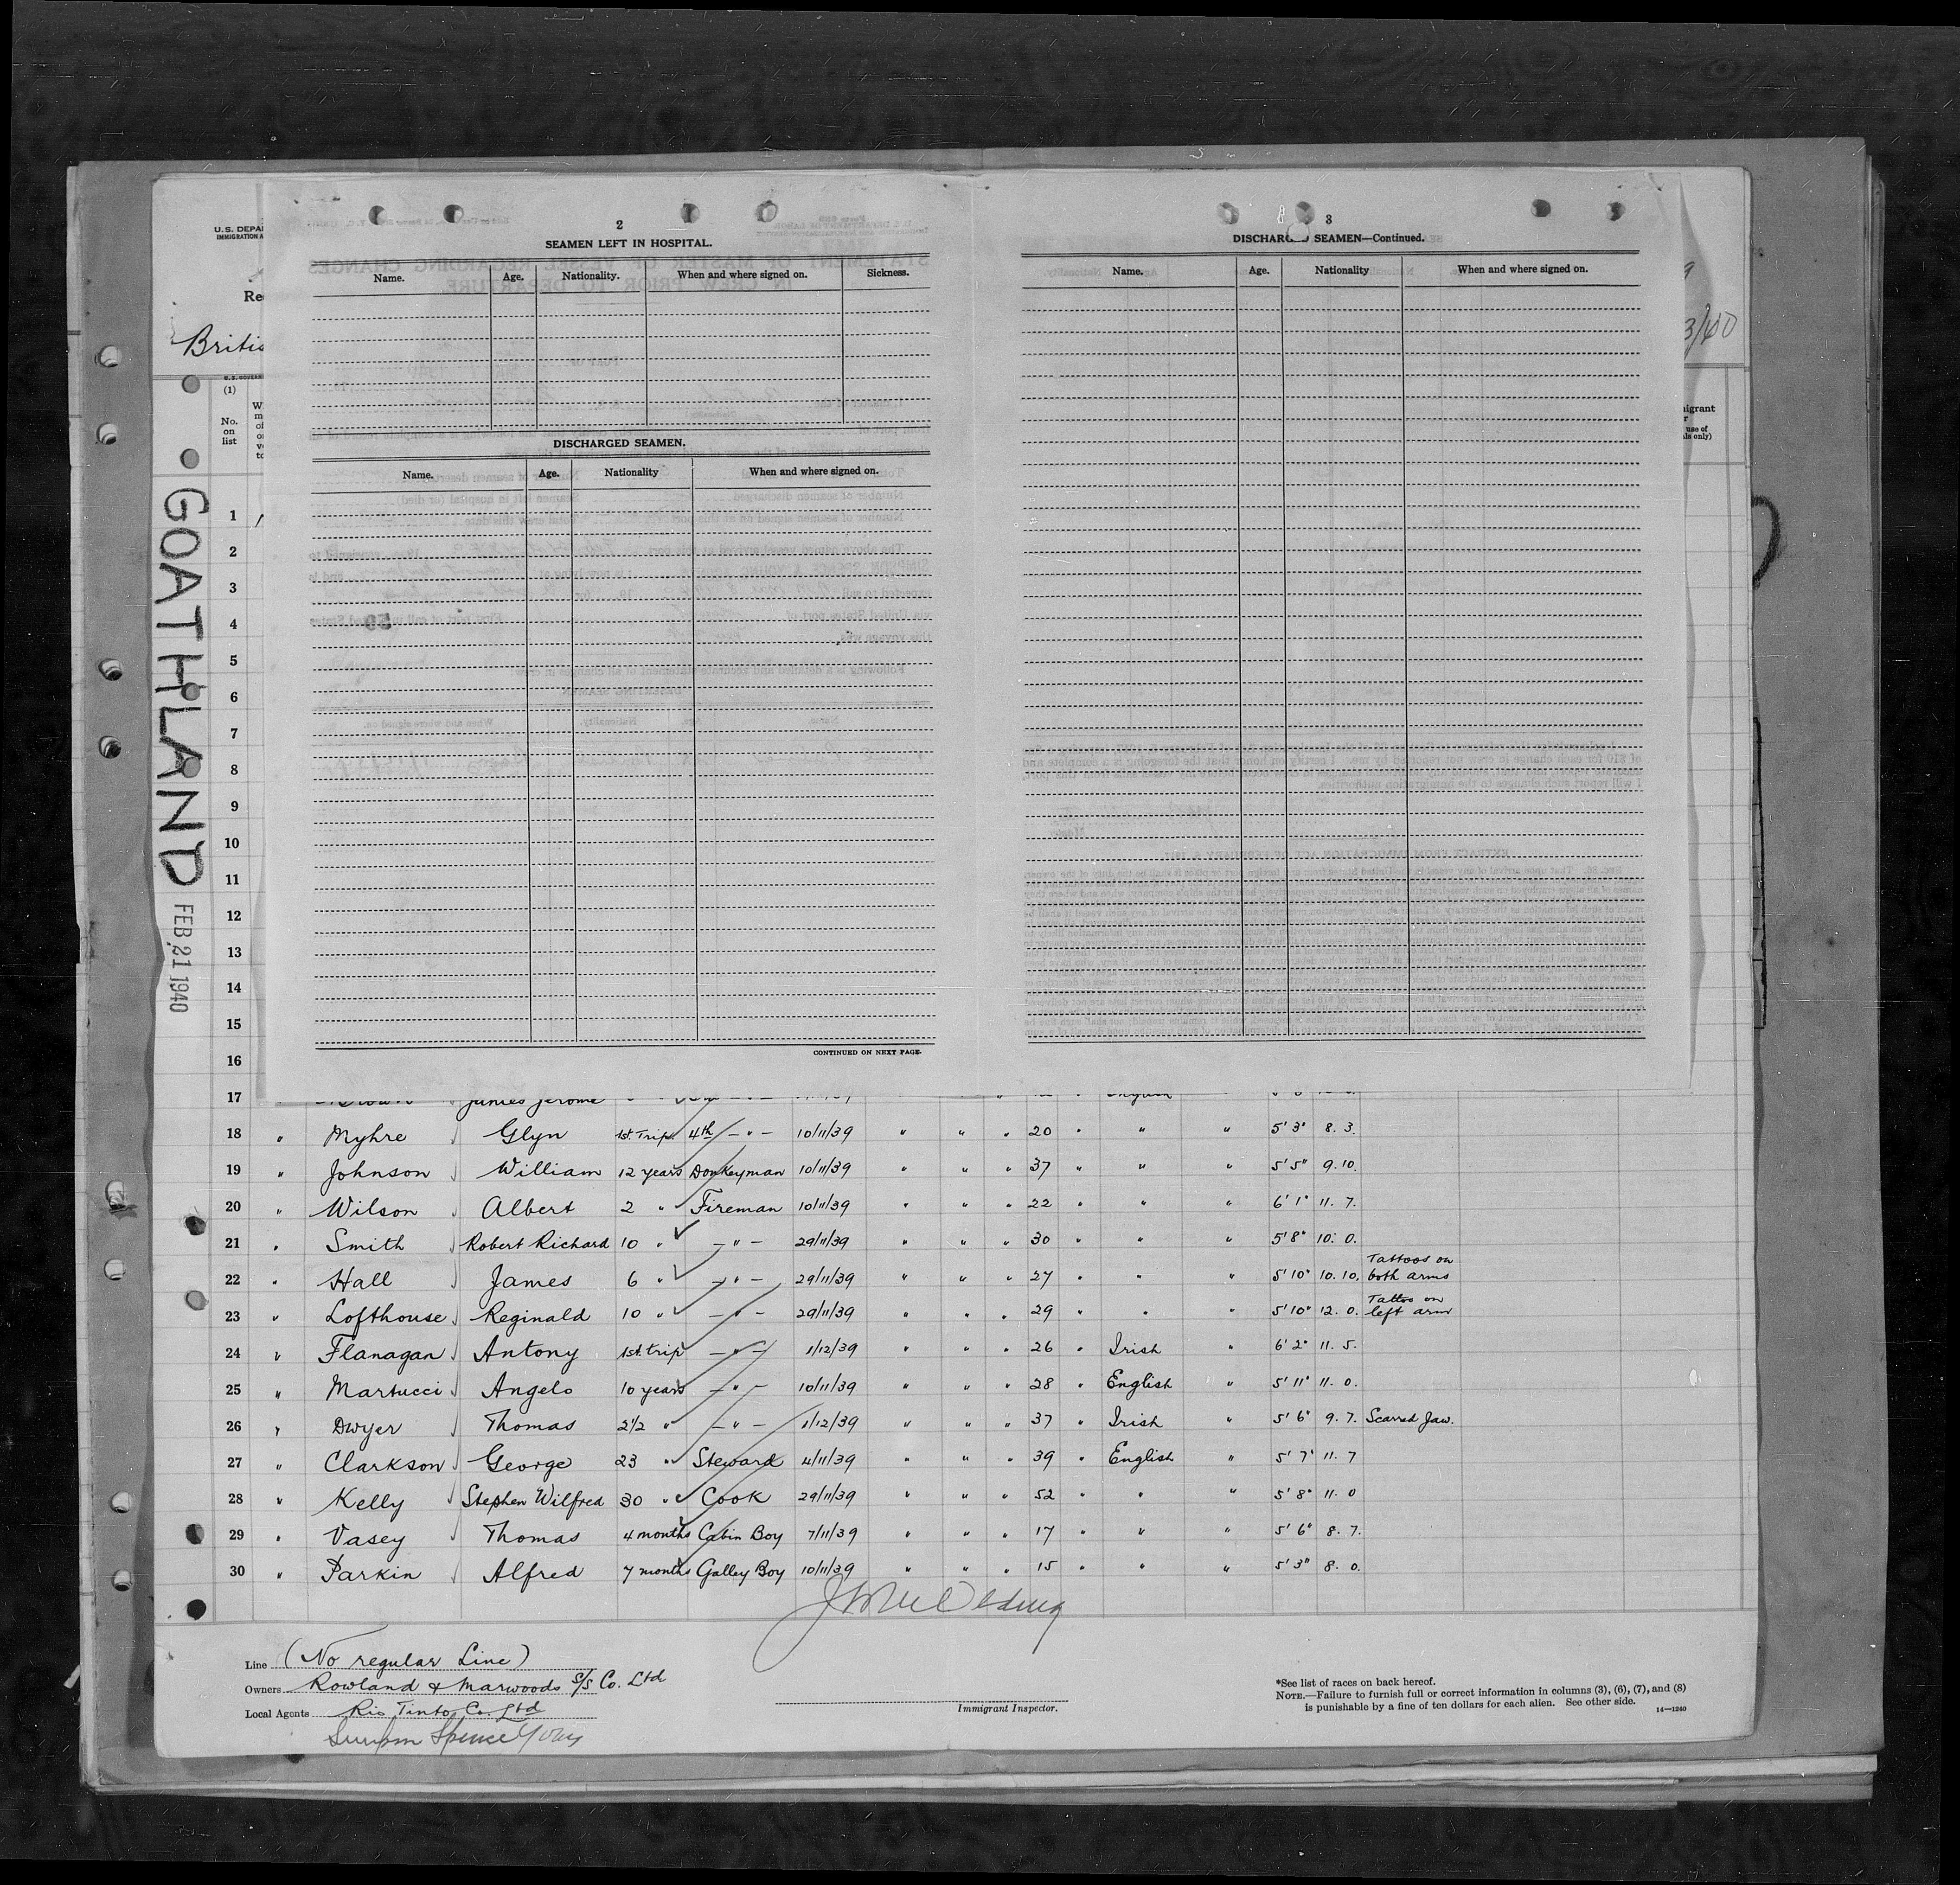 U.S. DEPA
IMMIGRATION A
Re
Britis
(1)
No.
on
list
GOATHLAND FEB 21 1940
2
SEAMEN LEFT IN HOSPITAL.
Name. Age. Nationality. When and where signed on. Sickness.
DISCHARGED SEAMEN.
Name. Age. Nationality When and where signed on.
CONTINUED ON NEXT PAGE.
3
DISCHARG SEAMEN—Continued.
Name. Age. Nationality When and where signed on.
3/40
1
2
3
4
5
6
7
8
9
10
11
12
13
14
15
16
17 James Jerome
18 " Myhre Glyn 1st. Trip 4th — " — 10/11/39 " " " 20 " " " 5' 3" 8. 3.
19 " Johnson William 12 years Donkeyman 10/11/39 " " " 37 " " " 5' 5" 9. 10.
20 " Wilson Albert 2 " Fireman 10/11/39 " " " 22 " " " 6' 1" 11. 7.
21 " Smith Robert Richard 10 " — " — 29/11/39 " " " 30 " " " 5' 8" 10. 0.
22 " Hall James 6 " — " — 29/11/39 " " " 27 " " " 5' 10" 10. 10. Tattoos on both arms
23 " Lofthouse Reginald 10 " — " — 29/11/39 " " " 29 " " " 5' 10" 12. 0. Tattoo on left arm
24 " Flanagan Antony 1st. trip — " — 1/12/39 " " " 26 " Irish " 6' 2" 11. 5.
25 " Martucci Angelo 10 years — " — 10/11/39 " " " 28 " English " 5' 11" 11. 0.
26 " Dwyer Thomas 2 1/2 " — " — 1/12/39 " " " 37 " Irish " 5' 6" 9. 7. Scarred Jaw.
27 " Clarkson George 23 " Steward 4/11/39 " " " 39 " English " 5' 7" 11. 7
28 " Kelly Stephen Wilfred 30 " Cook 29/11/39 " " " 52 " " " 5' 8" 11. 0
29 " Vasey Thomas 4 months Cabin Boy 7/11/39 " " " 17 " " " 5' 6" 8. 7.
30 " Parkin Alfred 7 months Galley Boy 10/11/39 " " " 15 " " " 5' 3" 8. 0.
Line (No regular Line)
Owners Rowland & Marwoods S/S Co. Ltd
Local Agents Rio Tinto Co. Ltd
Simpson Spence Young
Immigrant Inspector.
*See list of races on back hereof.
NOTE.—Failure to furnish full or correct information in columns (3), (6), (7), and (8)
is punishable by a fine of ten dollars for each alien. See other side.
14—1240